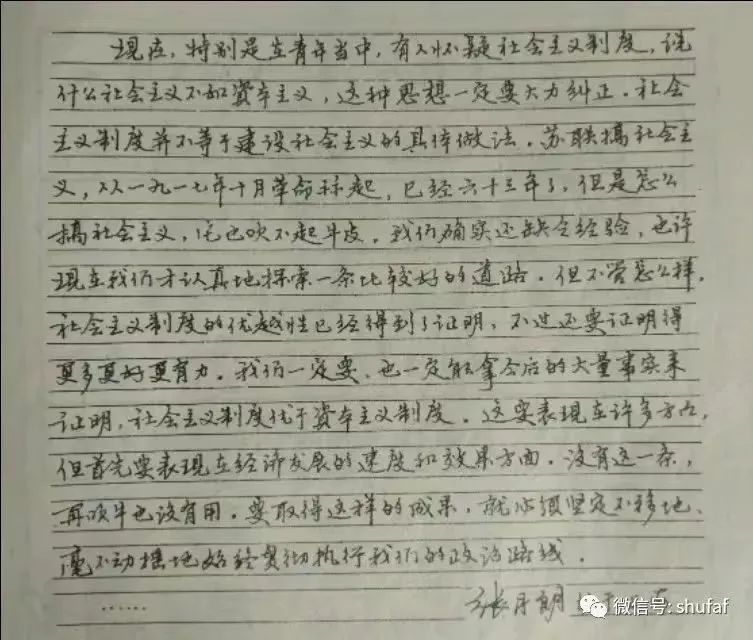 现在，特别是在青年当中，有人怀疑社会主义制度，说
什么社会主义不如资本主义，这种思想一定要大力纠正．社会
主义制度并不等于建设社会主义的具体做法．苏联搞社会主
义，从一九一七年十月革命标起，已经六十三年了，但是怎么
搞社会主义，它也吹不起牛皮．我们确实还缺乏经验，也许
现在我们才认真地探索一条比较好的道路．但不管怎么样，
社会主义制度的优越性已经得到了证明，不过还要证明得
更多更好更有力．我们一定要、也一定能拿今后的大量事实来
证明，社会主义制度优于资本主义制度．这要表现在许多方面，
但首先要表现在经济发展的速度和效果方面．没有这一条，
再吹牛也没有用．要取得这样的成果，就必须坚定不移地、
毫不动摇地始终贯彻执行我们的政治路线．
……
张月朗
微信号: shufaf